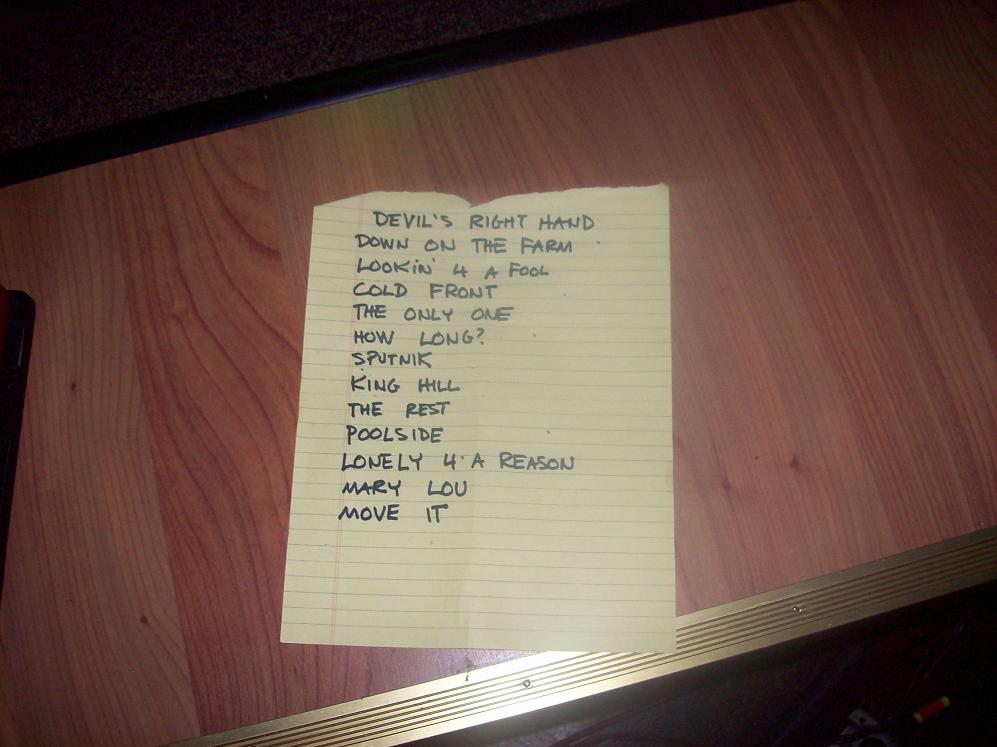 DEVIL'S RIGHT HAND
DOWN ON THE FARM
LOOKIN' 4 A FOOL
COLD FRONT
THE ONLY ONE
HOW LONG?
SPUTNIK
KING HILL
THE REST
POOLSIDE
LONELY 4 A REASON
MARY LOU
MOVE IT